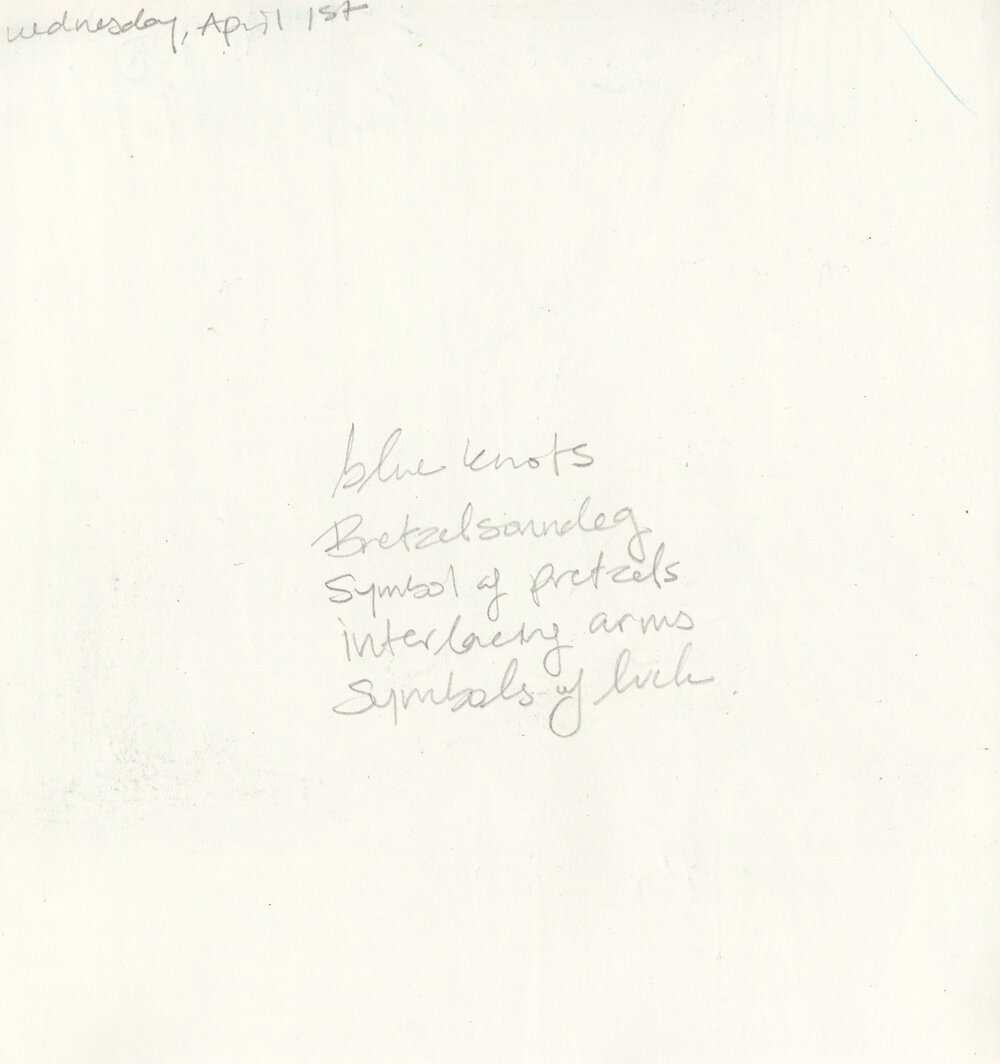 wednesday, April 1st
blue knots
Bretzelsonndeg
Symbol of pretzels
interlacing arms
Symbols of luck.